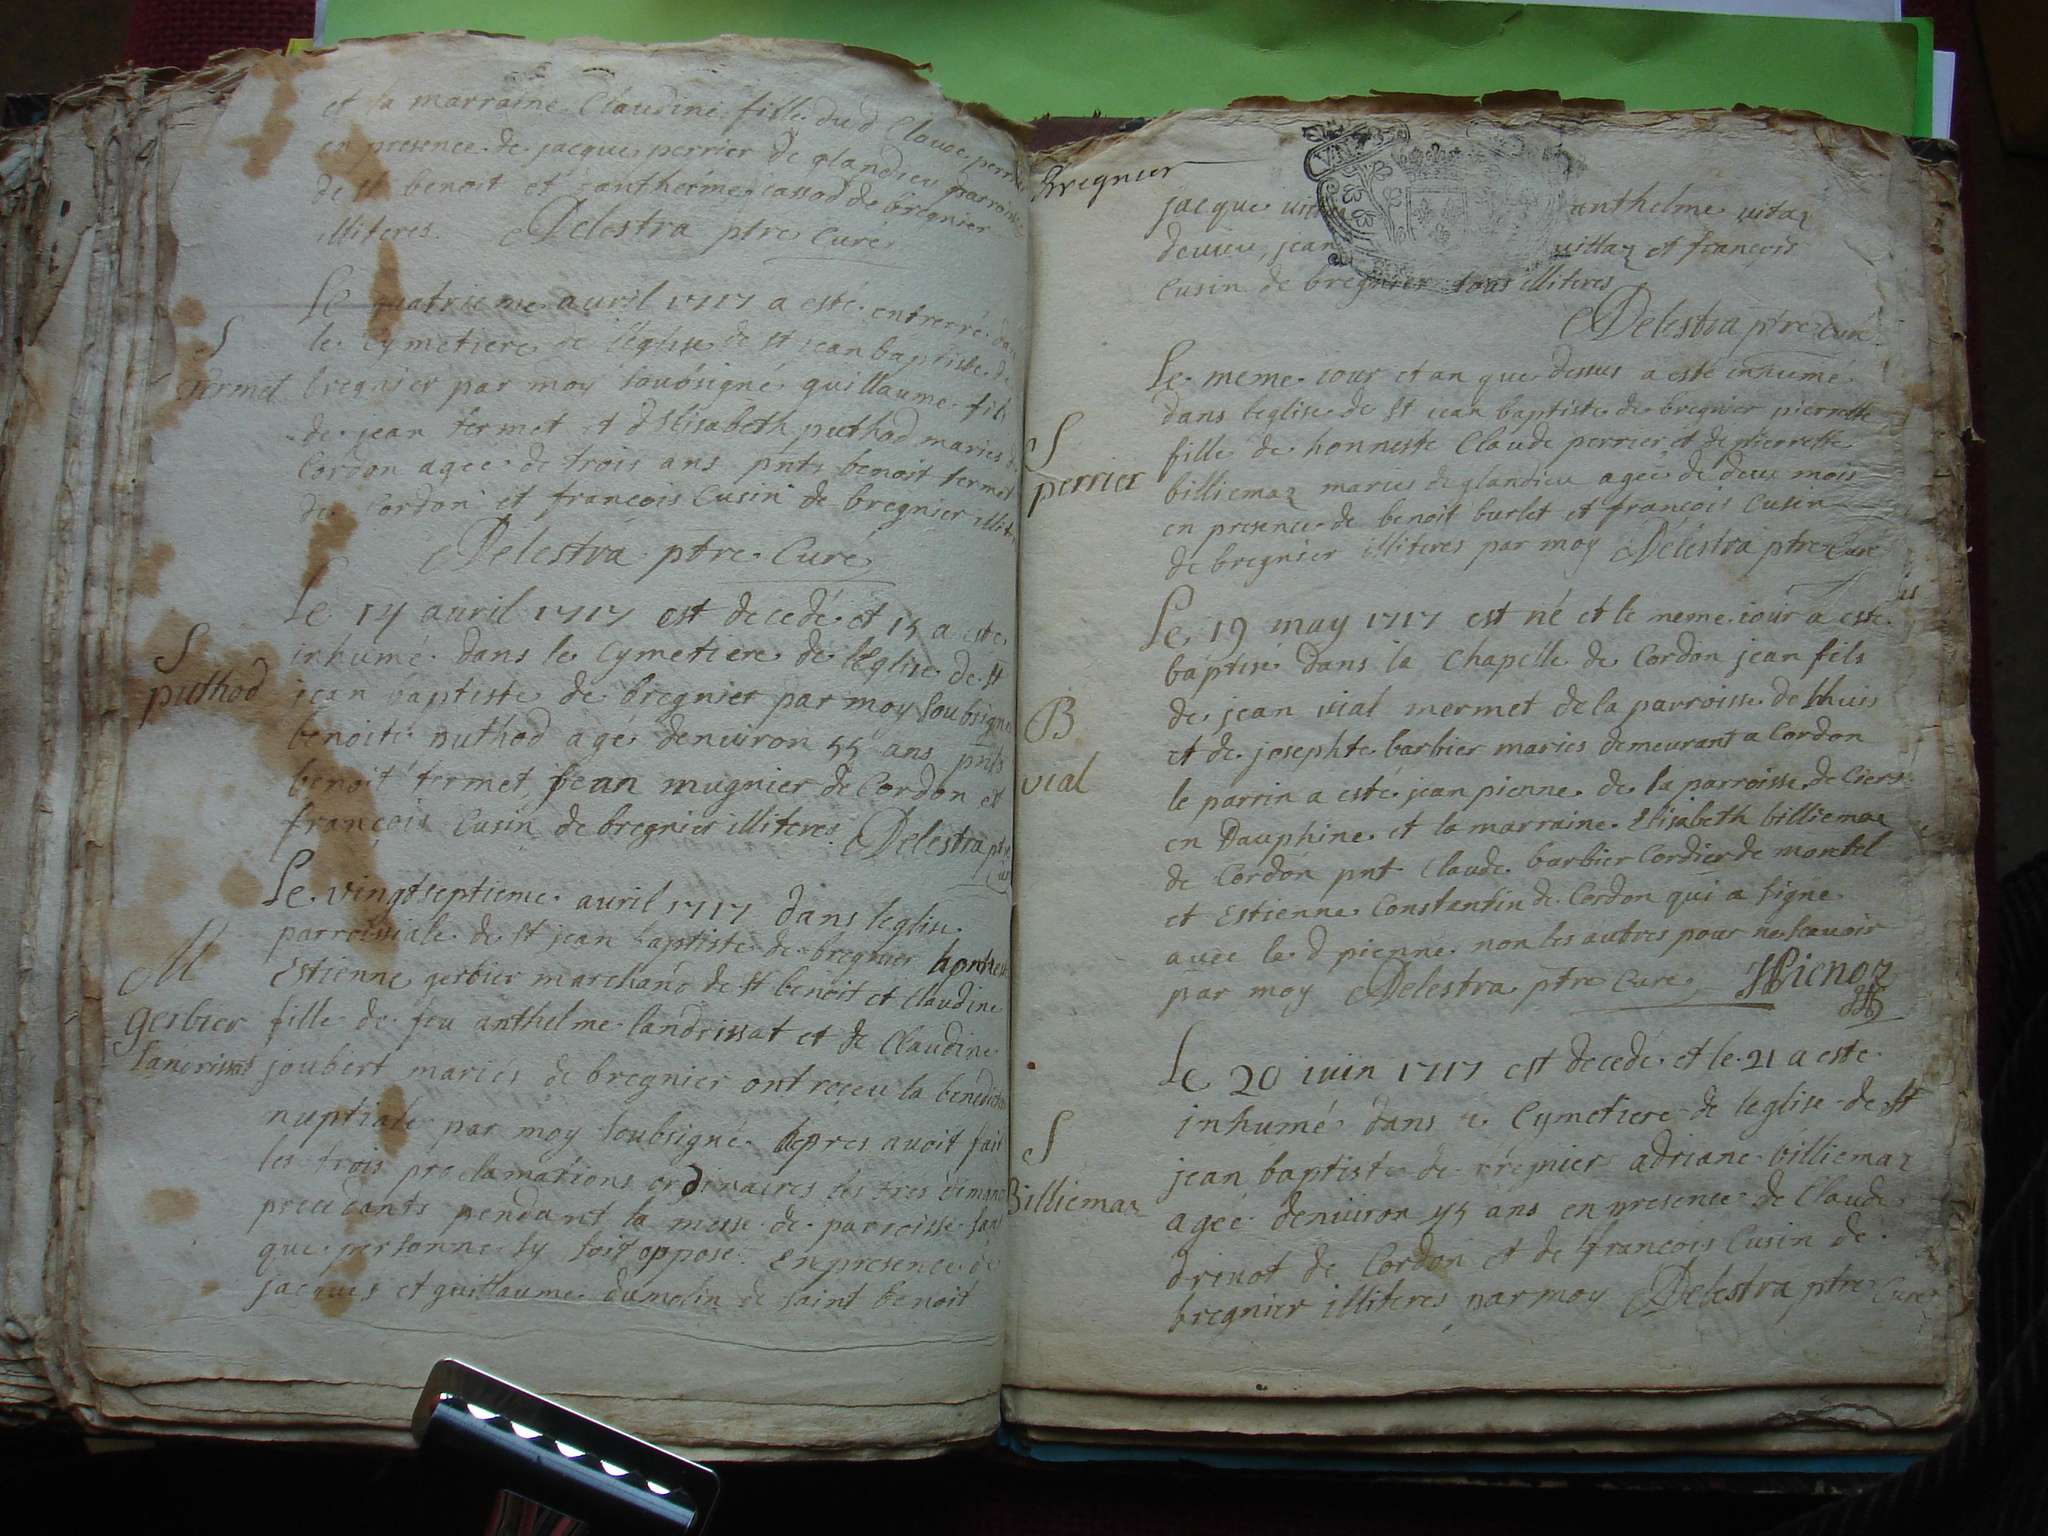 et la marraine Claudine fille du d Claude perrier
en presence de jacque perrier de glandieu parroisse
de st benoit et anthelme cassod de bregnier
illiteres. Delestra ptre Curé
Le quatrieme auril 1717 a esté enterré dans
le Cymetiere de l'église de st jean baptiste de
S
Termet
bregnier par moy soubsigné guillaume fils
de jean termet et d'Elisabeth puthod maries de
Cordon agee de trois ans pnts benoit termet
de Cordon et francois Cusin de bregnier illit
Delestra ptre Curé
Le 14 auril 1717 est decedé et 15 a esté
S
puthod
inhumé dans le Cymetiere de l'Eglise de st
jean baptiste de bregnier par moy soubsigné
benoite puthod agé denuiron 55 ans pnts
benoit termet, jean mugnier de Cordon et
françois Cusin de bregnier illiteres. Delestra ptre
Cur
Le vingtseptieme auril 1717 dans leglise
parroissiale de st jean baptiste de bregnier honneste
M
Estienne gerbier marchand de st benoit et Claudine
gerbier
fille de feu anthelme landrissat et de Claudine
landrissat
joubert maries de bregnier ont receu la benediction
nuptiale par moy soubsigné apres auoit fait
les trois proclamations ordinaires les tres dimanc
precedants pendant la messe de parroisse sans
que personne sy soit opposé. En presence de
jacques et guillaume dumolin de saint benoit
bregnier
jacque anthelme vitaz
deuieu, jean vittaz et françois
Cusin de bregnier tous illiteres
Delestra ptre Curé
Le meme iour et an que dessus a esté inhumé
dans leglise de st jean baptiste de bregnier pierrette
S
perrier
fille de honneste Claude perrier et de pierrette
billiemaz maries de glandieu agee de deux mois
en presence de benoit burlet et françois Cusin
de bregnier illiteres par moy Delestra ptre Curé
Le 19 may 1717 est né et le meme iour a esté
baptisé dans la Chapelle de Cordon jean fils
B
vial
de jean vial mermet de la parroisse de lhuis
et de josephte barbier maries demeurant a Cordon
le parrin a esté jean pienne de la parroisse de Ciers
en Dauphine et la marraine Elisabeth billiemaz
de Cordon pnt Claude barbier Cordier de montel
et Estienne Constantin de Cordon qui a signe
auec le d pienne non les autres pour ne scauoir
par moy Delestra ptre Curé JPienoz
Le 20 iuin 1717 est decedé et le 21 a esté
inhumé dans le Cymetiere de leglise de st
S
Billiemaz
jean baptiste de bregnier adriane billiemaz
agee denuiron 45 ans en presence de Claude
driuot de Cordon et de françois Cusin de
bregnier illiteres par moy Delestra ptre Curé